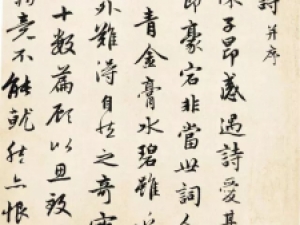 詩 并序
陳子昂感遇詩愛其
節豪宕非當世詞人
青金膏水碧雖
外難得自然之奇寶
十數篇顧以思致
竟不能就然亦恨